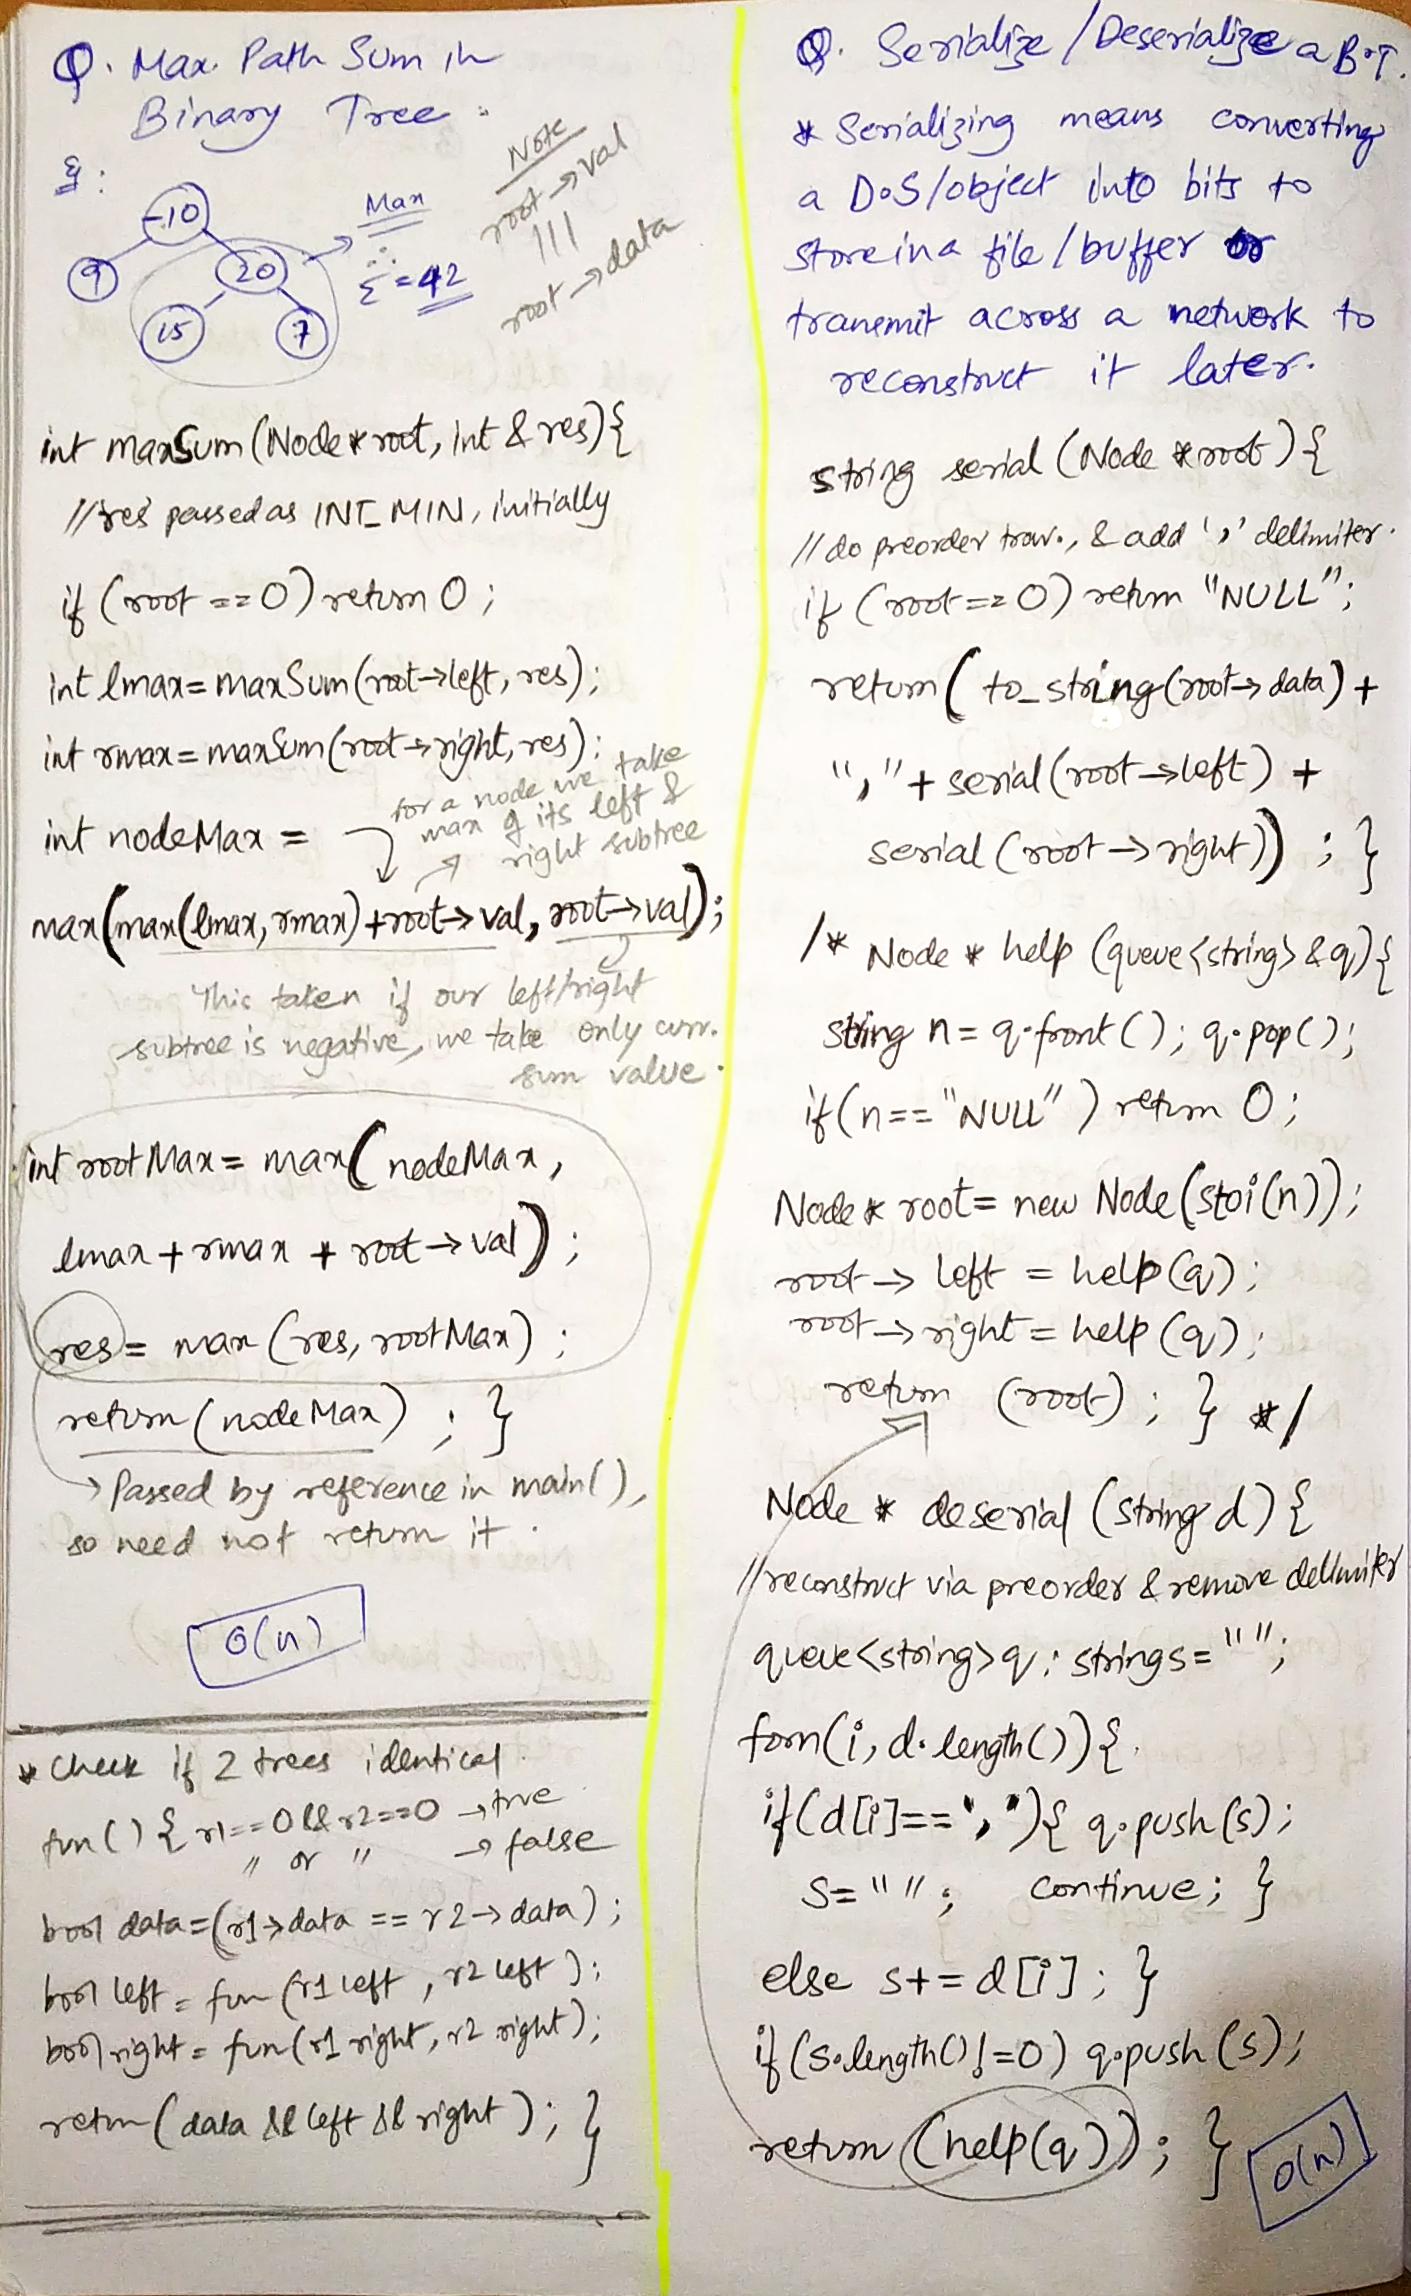 Q. Max Path Sum in
Binary Tree :
Eg :
-10
9
20
15
7
Max
∴ Σ = 42
Note
root → val
|||
root → data
int maxSum (Node * root, int & res) {
// 'res' passed as INT_MIN, initially
if (root == 0) return 0 ;
int lmax = maxSum (root → left, res) ;
int rmax = maxSum (root → right, res) ;
int nodeMax =
for a node we take
max of its left &
right subtree
max(max(lmax, rmax) + root → val, root → val) ;
This taken if our left/right
subtree is negative, we take only curr.
sum value.
int rootMax = max( nodeMax,
lmax + rmax + root → val) ;
res = max (res, rootMax) ;
return (nodeMax) ; }
→ Passed by reference in main(),
so need not return it .
O(n)
* Check if 2 trees identical.
fun() { r1==0 && r2==0 → true
" or " → false
bool data = (r1 → data == r2 → data) ;
bool left = fun (r1 left , r2 left ) ;
bool right = fun (r1 right, r2 right) ;
return ( data && left && right ) ; }
Q. Serialize / Deserialize a B.T.
* Serializing means converting
a D.S/object into bits to
store in a file / buffer or
transmit across a network to
reconstruct it later.
string serial (Node * root ) {
// do preorder trav., & add ',' delimiter.
if (root == 0) return "NULL" ;
return ( to_string (root → data) +
"," + serial (root → left ) +
serial (root → right)) ; }
/* Node * help (queue<string> & q) {
string n = q.front ( ) ; q.pop( ) ;
if (n == "NULL" ) return 0 ;
Node * root = new Node (stoi(n)) ;
root → left = help (q) ;
root → right = help (q) ;
return (root) ; } */
Node * deserial (string d) {
// reconstruct via preorder & remove delimiter
queue <string> q ; string s = "" ;
forn(i, d.length()) {
if (d[i] == ',') { q.push (s) ;
s = "" ; continue ; }
else s += d [i] ; }
if (s.length() != 0) q.push (s) ;
return (help(q)) ; }
O(n)